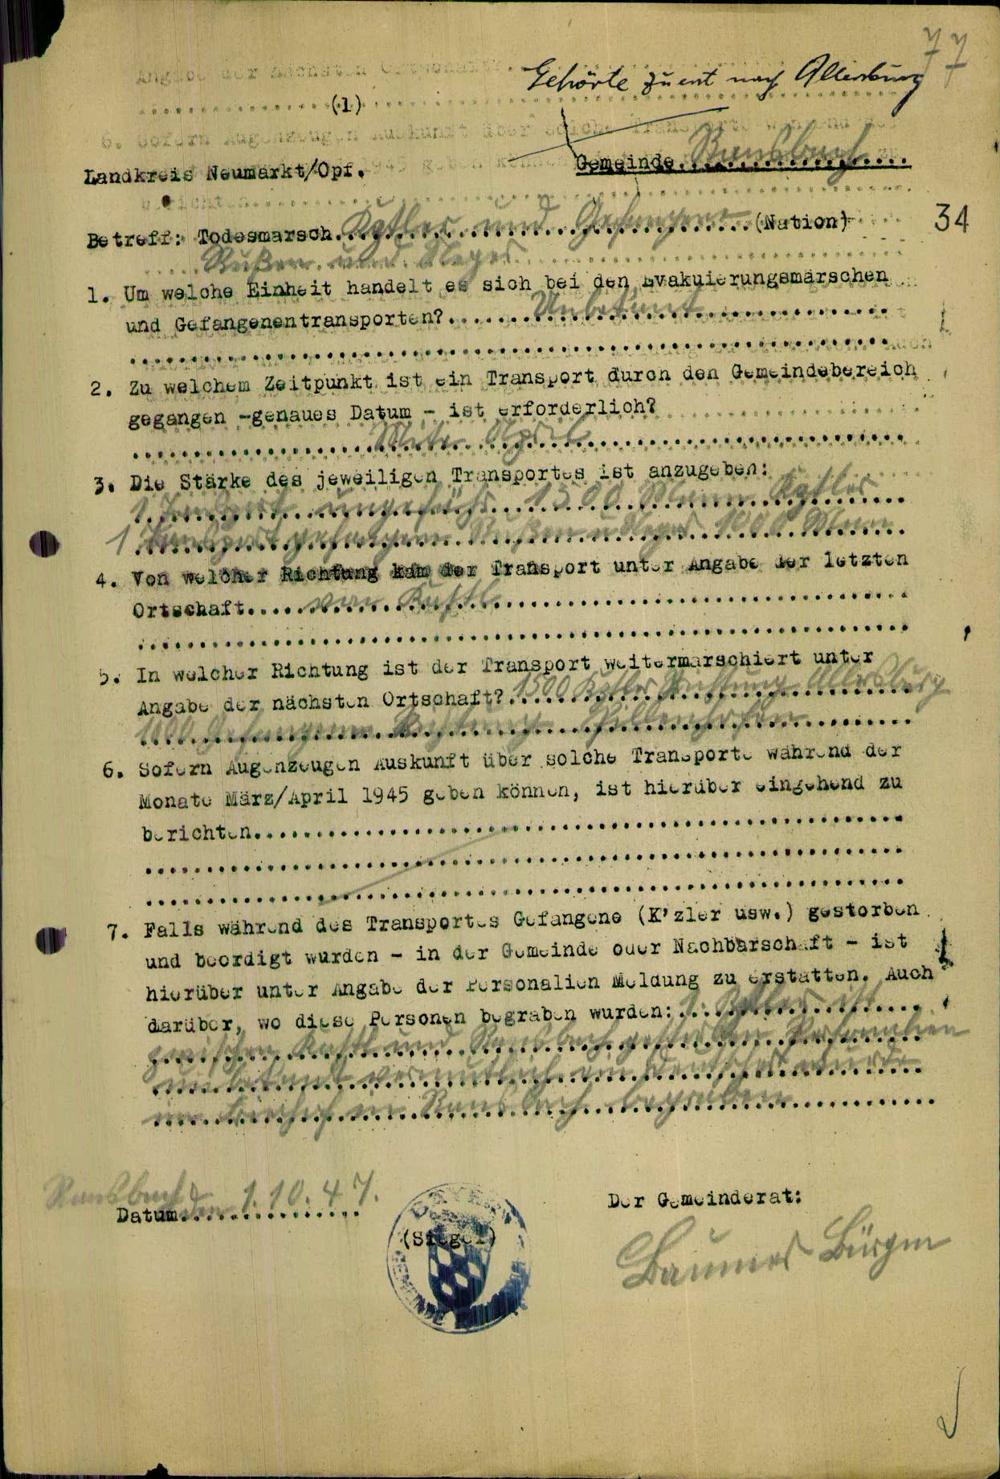 77
Gehörte zuerst nach Allersburg
(1)
Gemeinde Ransbach
Landkreis Neumarkt/Opf.
34
Betreff: Todesmarsch Kztler und Gefangene (Nation)
Rußen und Neger
1. Um welche Einheit handelt es sich bei den Evakuierungsmärschen
und Gefangenentransporten? Unbekannt
2. Zu welchem Zeitpunkt ist ein Transport durch den Gemeindebereich
gegangen -genaues Datum - ist erforderlich?
Mitte April
3. Die Stärke des jeweiligen Transportes ist anzugeben:
1 Transport ungefähr 1500 Mann Kztler
1 Transport gefangene Rußen u Neger 1000 Mann
4. Von welcher Richtung kam der Transport unter Angabe der letzten
Ortschaft von Kastl
5. In welcher Richtung ist der Transport weitermarschiert unter
Angabe der nächsten Ortschaft? 1500 Kztler Richtung Allersburg
1000 Gefangene Richtung
6. Sofern Augenzeugen Auskunft über solche Transporte während der
Monate März/April 1945 geben können, ist hierüber eingehend zu
berichten
7. Falls während des Transportes Gefangene (K'zler usw.) gestorben
und beerdigt wurden - in der Gemeinde oder Nachbarschaft - ist
hierüber unter Angabe der Personalien Meldung zu erstatten. Auch
darüber, wo diese Personen begraben wurden: 1. Kztler ist
zwischen Kastl und Ransbach gestorben Personalien
unbekannt vermutlich ein Deutscher wurde
im in Ransbach begraben
Ransbach den 1.10.47.
Datum
(Siegel)
BAYERN
GEMEINDE
Der Gemeinderat:
Baumer Bürgm